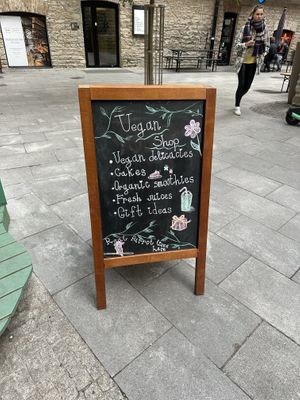 Vegan
Shop
• Vegan delicacies
• Cakes
• Organic smoothies
• Fresh juices
• Gift ideas